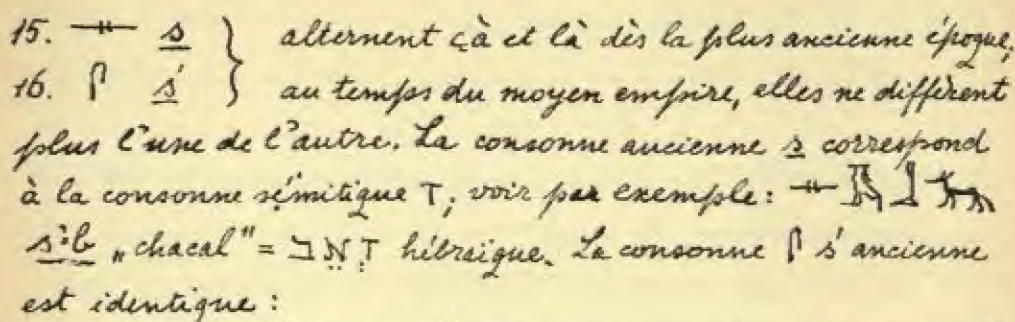 15. 𓊃 s } alternent çà et là dès la plus ancienne époque;
16. 𓋴 ś } au temps du moyen empire, elles ne diffèrent
plus l'une de l'autre. La consonne ancienne s correspond
à la consonne sémitique ז; voir par exemple: 𓊃
sꜣb „chacal" = זְאֵב hébraïque. La consonne 𓋴 ś ancienne
est identique :